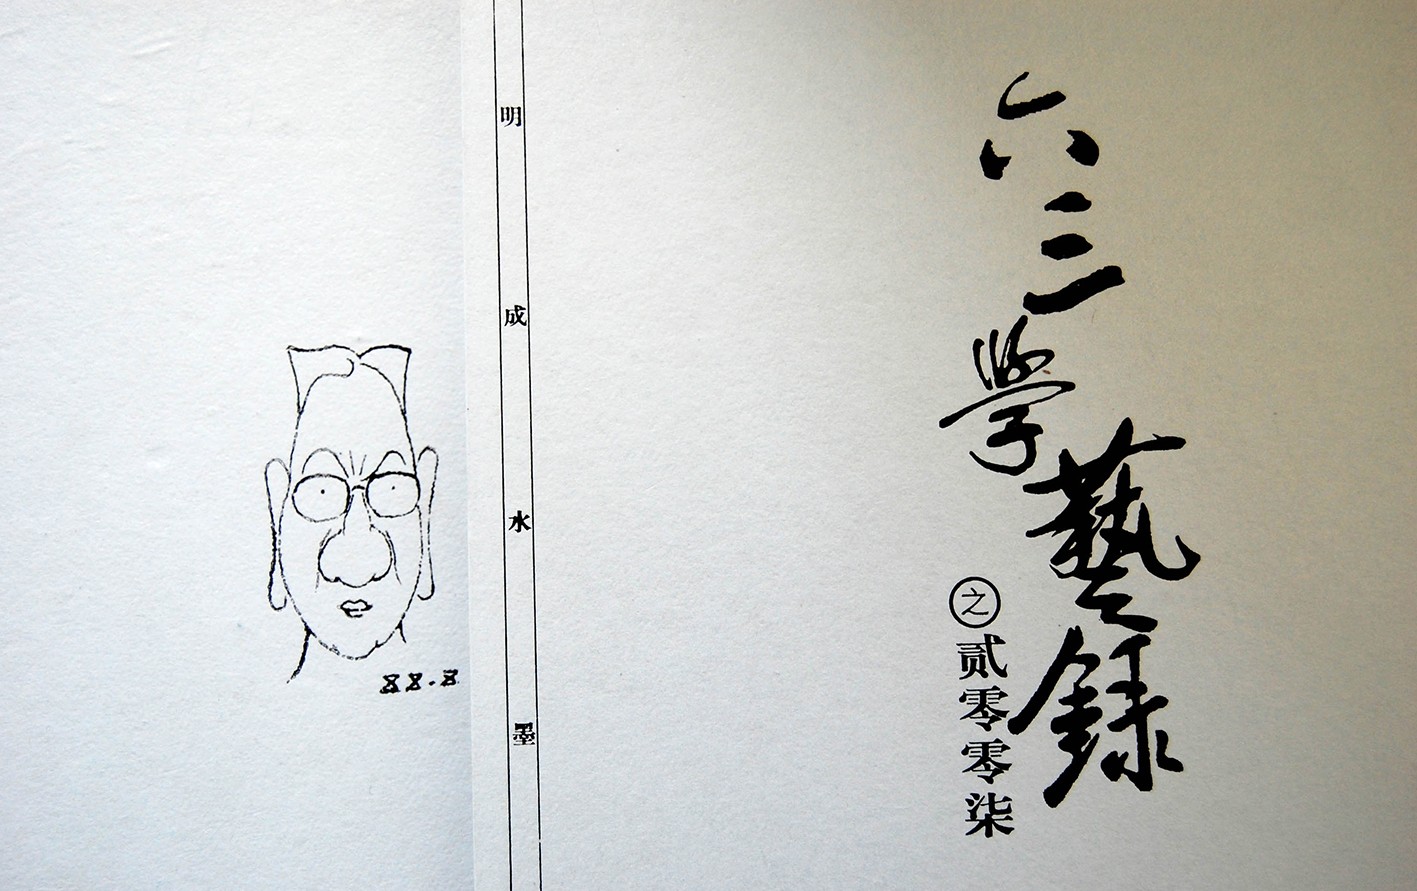 六三學藝録
之貳零零柒
明成水墨
88.8